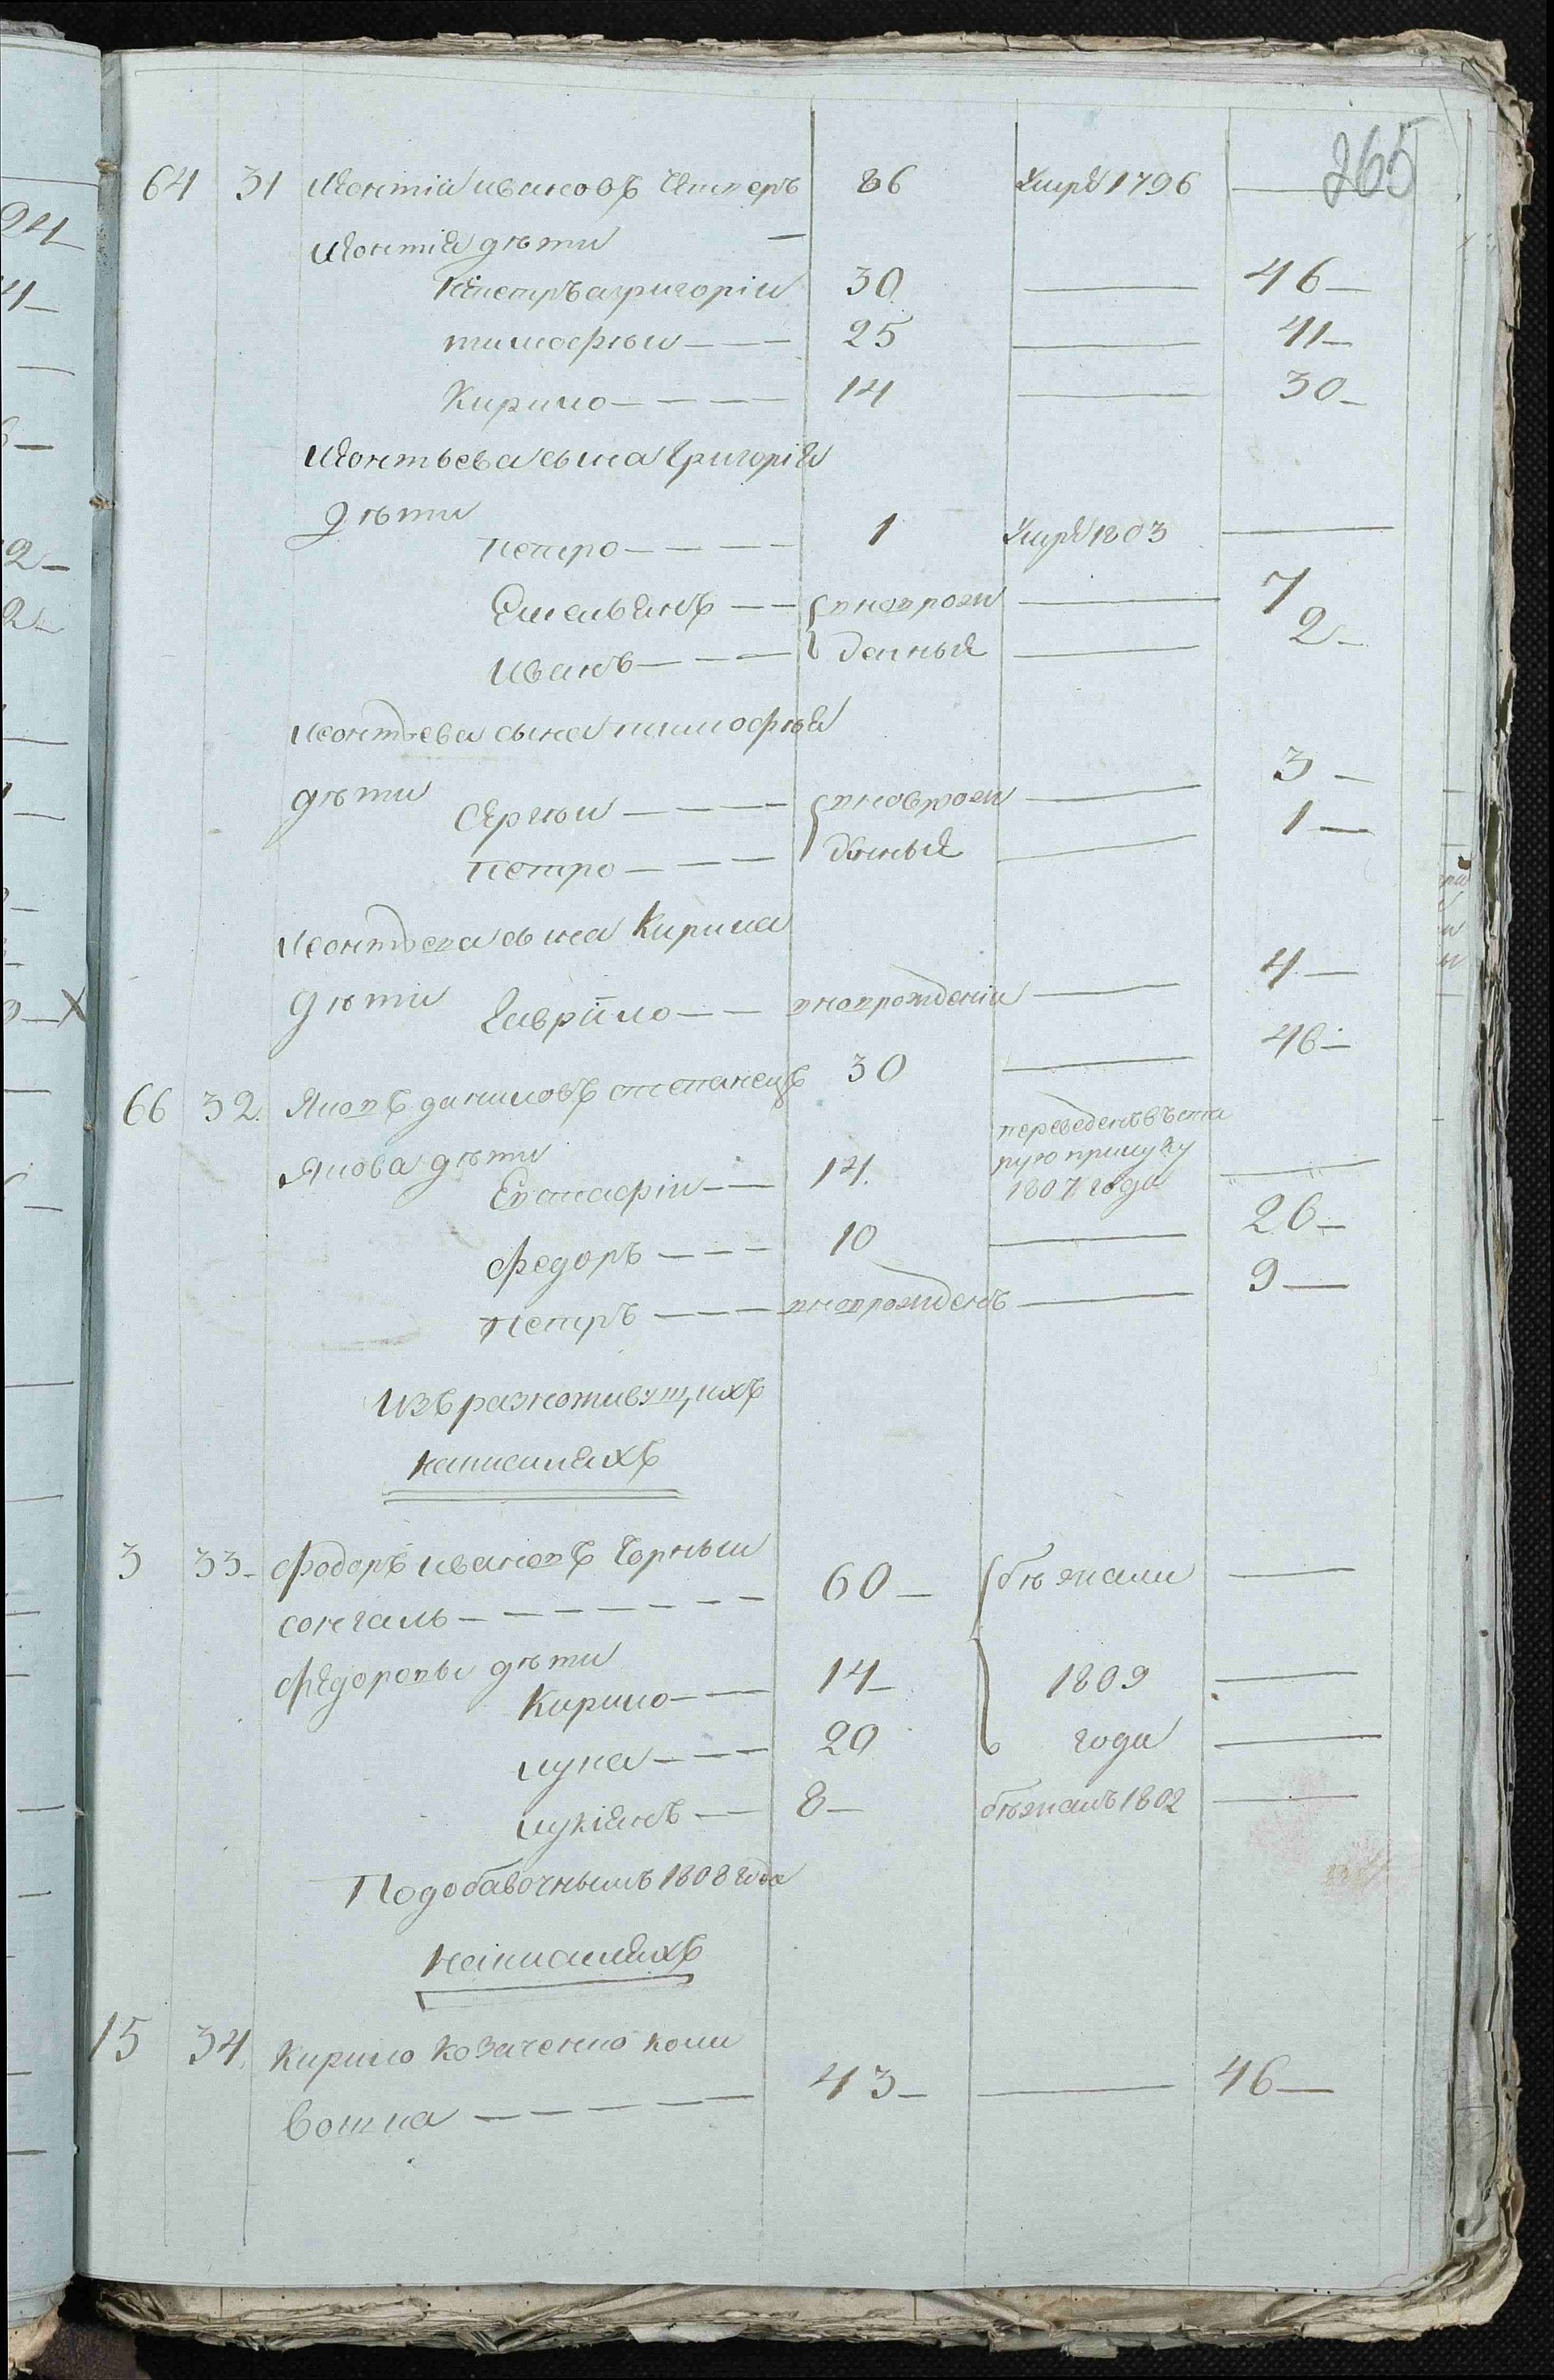 265
64 31 Леонтій ивановъ 86 Умре 1796 —
Леонтія дѣти —
григоріи 30 — 46 —
тимофѣи — — 25 — 41 —
Кирило — — — — 14 — 30 —
Леонтьева сына григорія
дѣти
петро — — — — 1 Умре 1803 —
Емельянъ — — вноврож — 7
иванъ — — — денныя — 2 —
леонтьева сына тимофѣя
дѣти
Сергѣи — — — вноврож — 3 —
петро — — — денныя — 1 —
леонтьева сына Кирила
дѣти
Гаврiило — — вноврожденіи — 4 —
66 32. Яковъ даниловъ степанецъ 30 — 46 —
Якова дѣти
Евстафіи — — 14. переведенъ въ ста
рую прилуку
1807 года —
федоръ — — — 10 — 26 —
петръ — — — вноврожденъ — 9 —
Изъ разноживущихъ
написанныхъ
3 33 федоръ ивановъ Чорныи
сонгаль — — — — — — — 60 — бѣжали —
федоровы дѣти
Кирило — — 14 — 1809 —
лука — — — 20 года —
лукіянъ — — 8 — бѣжалъ 1802 —
Подобавочнымъ 1808 года
написанныхъ
15 34. Кирило Козаченко коли
вошка — — — — — 43 — — 46 —